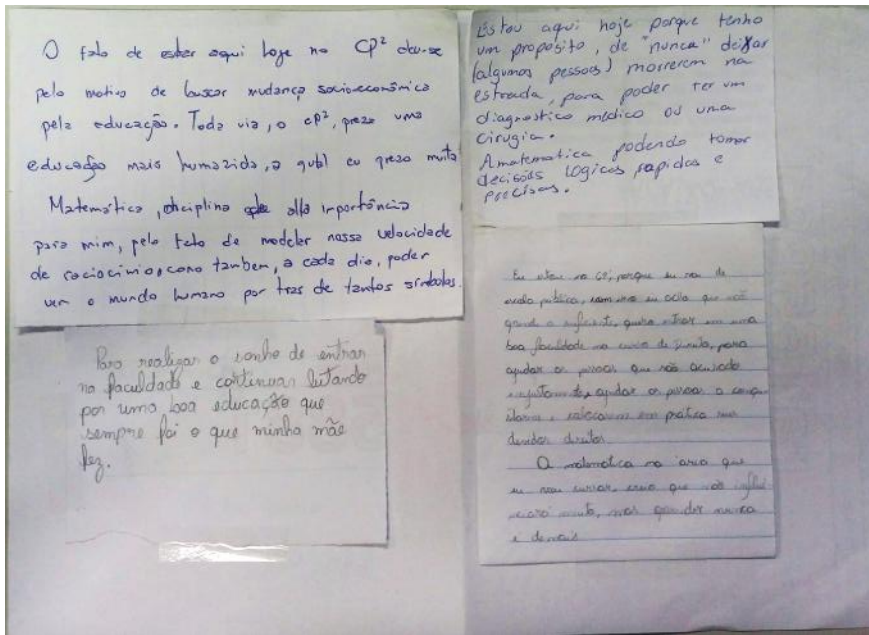 O fato de estar aqui hoje no CP² deu-se
pelo motivo de buscar mudança socioeconômica
pela educação. Toda via, o CP², preza uma
educação mais humazida, a qual eu prezo muito
Matemática, disciplina de alta importância
para mim, pelo fato de modelar nossa velocidade
de raciocínio, como tambem, a cada dia, poder
ver o mundo humano por tras de tantos símbolos.
Para realizar o sonho de entrar
na faculdade e continuar lutando
por uma boa educação que
sempre foi o que minha mãe
fez.
Estou aqui hoje porque tenho
um proposito, de "nunca" deixar
(algumas pessoas) morrerem na
estrada, para poder ter um
diagnostico médico ou uma
cirugia.
A matematica podendo tomar
decisões lógicas, rapidas e
precisas.
Eu estou no porque eu vim de
escola pública, eu acho que não
quero entrar em uma
boa faculdade no curso de Direito, para
ajudar as pessoas que são acusadas
injustamente, ajudar as pessoas a
e colocarem em prática seus
devidos direitos.
A matemática na área que
eu vou cursar, creio que não
muito, mas aprender nunca
é demais